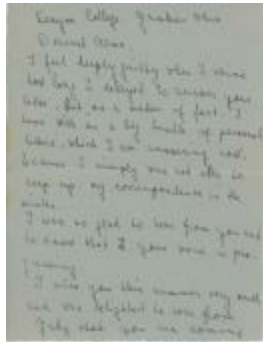 Kenyon College Gambier Ohio
Dearest Alma
I feel deeply guilty when I think
how long I delayed to answer your
letter. But as a matter of fact, I
have with me a big bundle of personal
letters, which I am answering now,
because I simply was not able to
keep up my correspondence in the
I was so glad to hear from you and
to know that your voice is
I miss you this summer very much
and was delighted to hear from
that you are coming